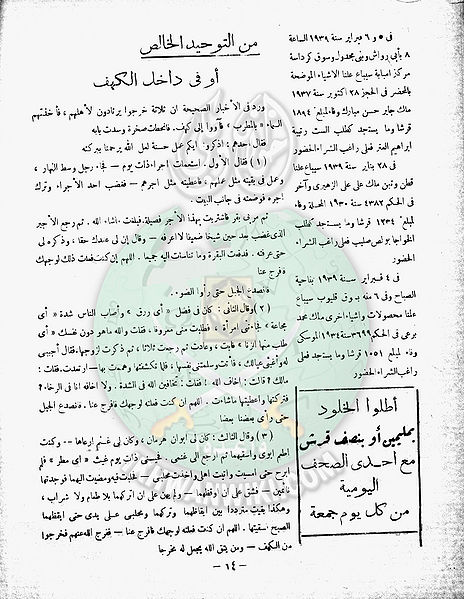 من التوحيد الخالص
أو فى داخل الكهف
ورد فى الأخبار الصحيحة ان ثلاثة خرجوا يرتادون لأهلهم، فأخذتهم
السماء «بالمطرب» فأووا إلى كهف. فانحطت صخرة وسدت بابه
فقال أحدهم: اذكروا: أيكم عمل حسنة لعل الله يرحمنا ببركته
(١) فقال الأول. استعملت أجراء ذات يوم — فجاء رجل وسط النهار،
وعمل فى بقيته مثل عملهم، فأعطيته مثل أجرهم — فغضب أحد الأجراء وترك
أجره فوضعته فى جانب البيت.
ثم مر بى بقر فاشتريت بهذا الأجر فصيلة. فبلغت ماشاء الله. ثم رجع الأجير
الذى غضب بعد حين شيخا ضعيفا لا أعرفه — وقال إن لى عندك حقا، وذكره لى
حتى عرفته. فدفعت البقرة وما تناسات اليه جميعا. اللهم إن كنت فعلت ذلك لوجهك
ففرج عنا
فصدع الجبل حتى رأوا الضوء.
(٢) وقال الثانى: كان فى فضل «أى رزق» وأصاب الناس شدة «أى
مجاعة» فجاءتنى امرأة. فطلبت منى معروفا، فقلت والله ماهو دون نفسك «أى
طلب منها الزنا» فأبت، وعادت ثم رجعت ثلاثا، ثم ذكرت لزوجها، فقال أجيبى
له وأغيثى عيالك، فأتت وسلمتنى نفسها، فلما تكشفتها وهممت بها — ارتعدت. فقلت:
مالك؟ قالت: أخاف الله! فقلت: تخافين الله فى الشدة. ولا أخافه انا فى الرخاء؟
فتركتها وأعطيتها ماشاءت. اللهم ان كنت فعلته لوجهك فافرج عنا. فصدع الجبل
حتى رأى بعضنا بعضا
(٣) وقال الثالث: كان لى ابوان هرمان، وكان لى غنم أرعاها — وكنت
اطعم ابوى واسقيهما ثم ارجع الى غنمى. فحبسنى ذات يوم غيث «أى مطر» فلم
ابرح حتى أمسيت وأتيت أهلى وأخذت محلبى. فحلبت فيه ومضيت اليهما فوجدتهما
نائمين — فشق على ان أوقظهما — وشق على ان اتركهما بلا طعام ولا شراب،
وهكذا بقيت مترددا بين ايقاظهما وتركهما ومحلبى على يدى حتى ايقظهما
الصبح فسقيتهما. اللهم ان كنت فعلته لوجهك فافرج عنا — ففرج الله عنهم فخرجوا
من الكهف — ومن يتق الله يجعل له مخرجا
فى ٥ و ٦ فبراير سنة ١٩٣٩ الساعة
٨ بأبى رواش وبنى مجدول وسوق كرداسة
مركز امبابة سيباع علنا الأشياء الموضحة
بالمحضر فى الحجز ٢٨ اكتوبر سنة ١٩٣٧
ملك جابر حسن مبارك وفاء لمبلغ ١٨٩٤
قرشا وما يستجد كطلب الست رتيبة
ابراهيم العتر فعلى راغب الشراء الحضور
فى ٢٨ يناير سنة ١٩٣٩ سيباع علنا
قطن وتبن ملك على على الزهيرى وآخر
فى الحكم ٤٣٨٧ سنة ١٩٣٠ المحلة وفاء
لمبلغ ١٢٣٤ قرشا وما يستجد كطلب
الخواجا بولص صليب فعلى راغب الشراء
الحضور
فى ٤ فبراير سنة ١٩٣٩ بناحية
الصباح وفى ٦ منه بسوق قليوب سيباع
علنا محصولات وأشياء أخرى ملك محمد
برعى فى الحكم ٣٦٩٩ سنة ١٩٣٤ الموسكى
وفاء لمبلغ ١٠٥١ قرشا وما يستجد فعلى
راغب الشراء الحضور
أطلبوا الخلود
بمليمين أو بنصف قرش
مع احدى الصحف
اليومية
من كل يوم جمعة
— ١٤ —